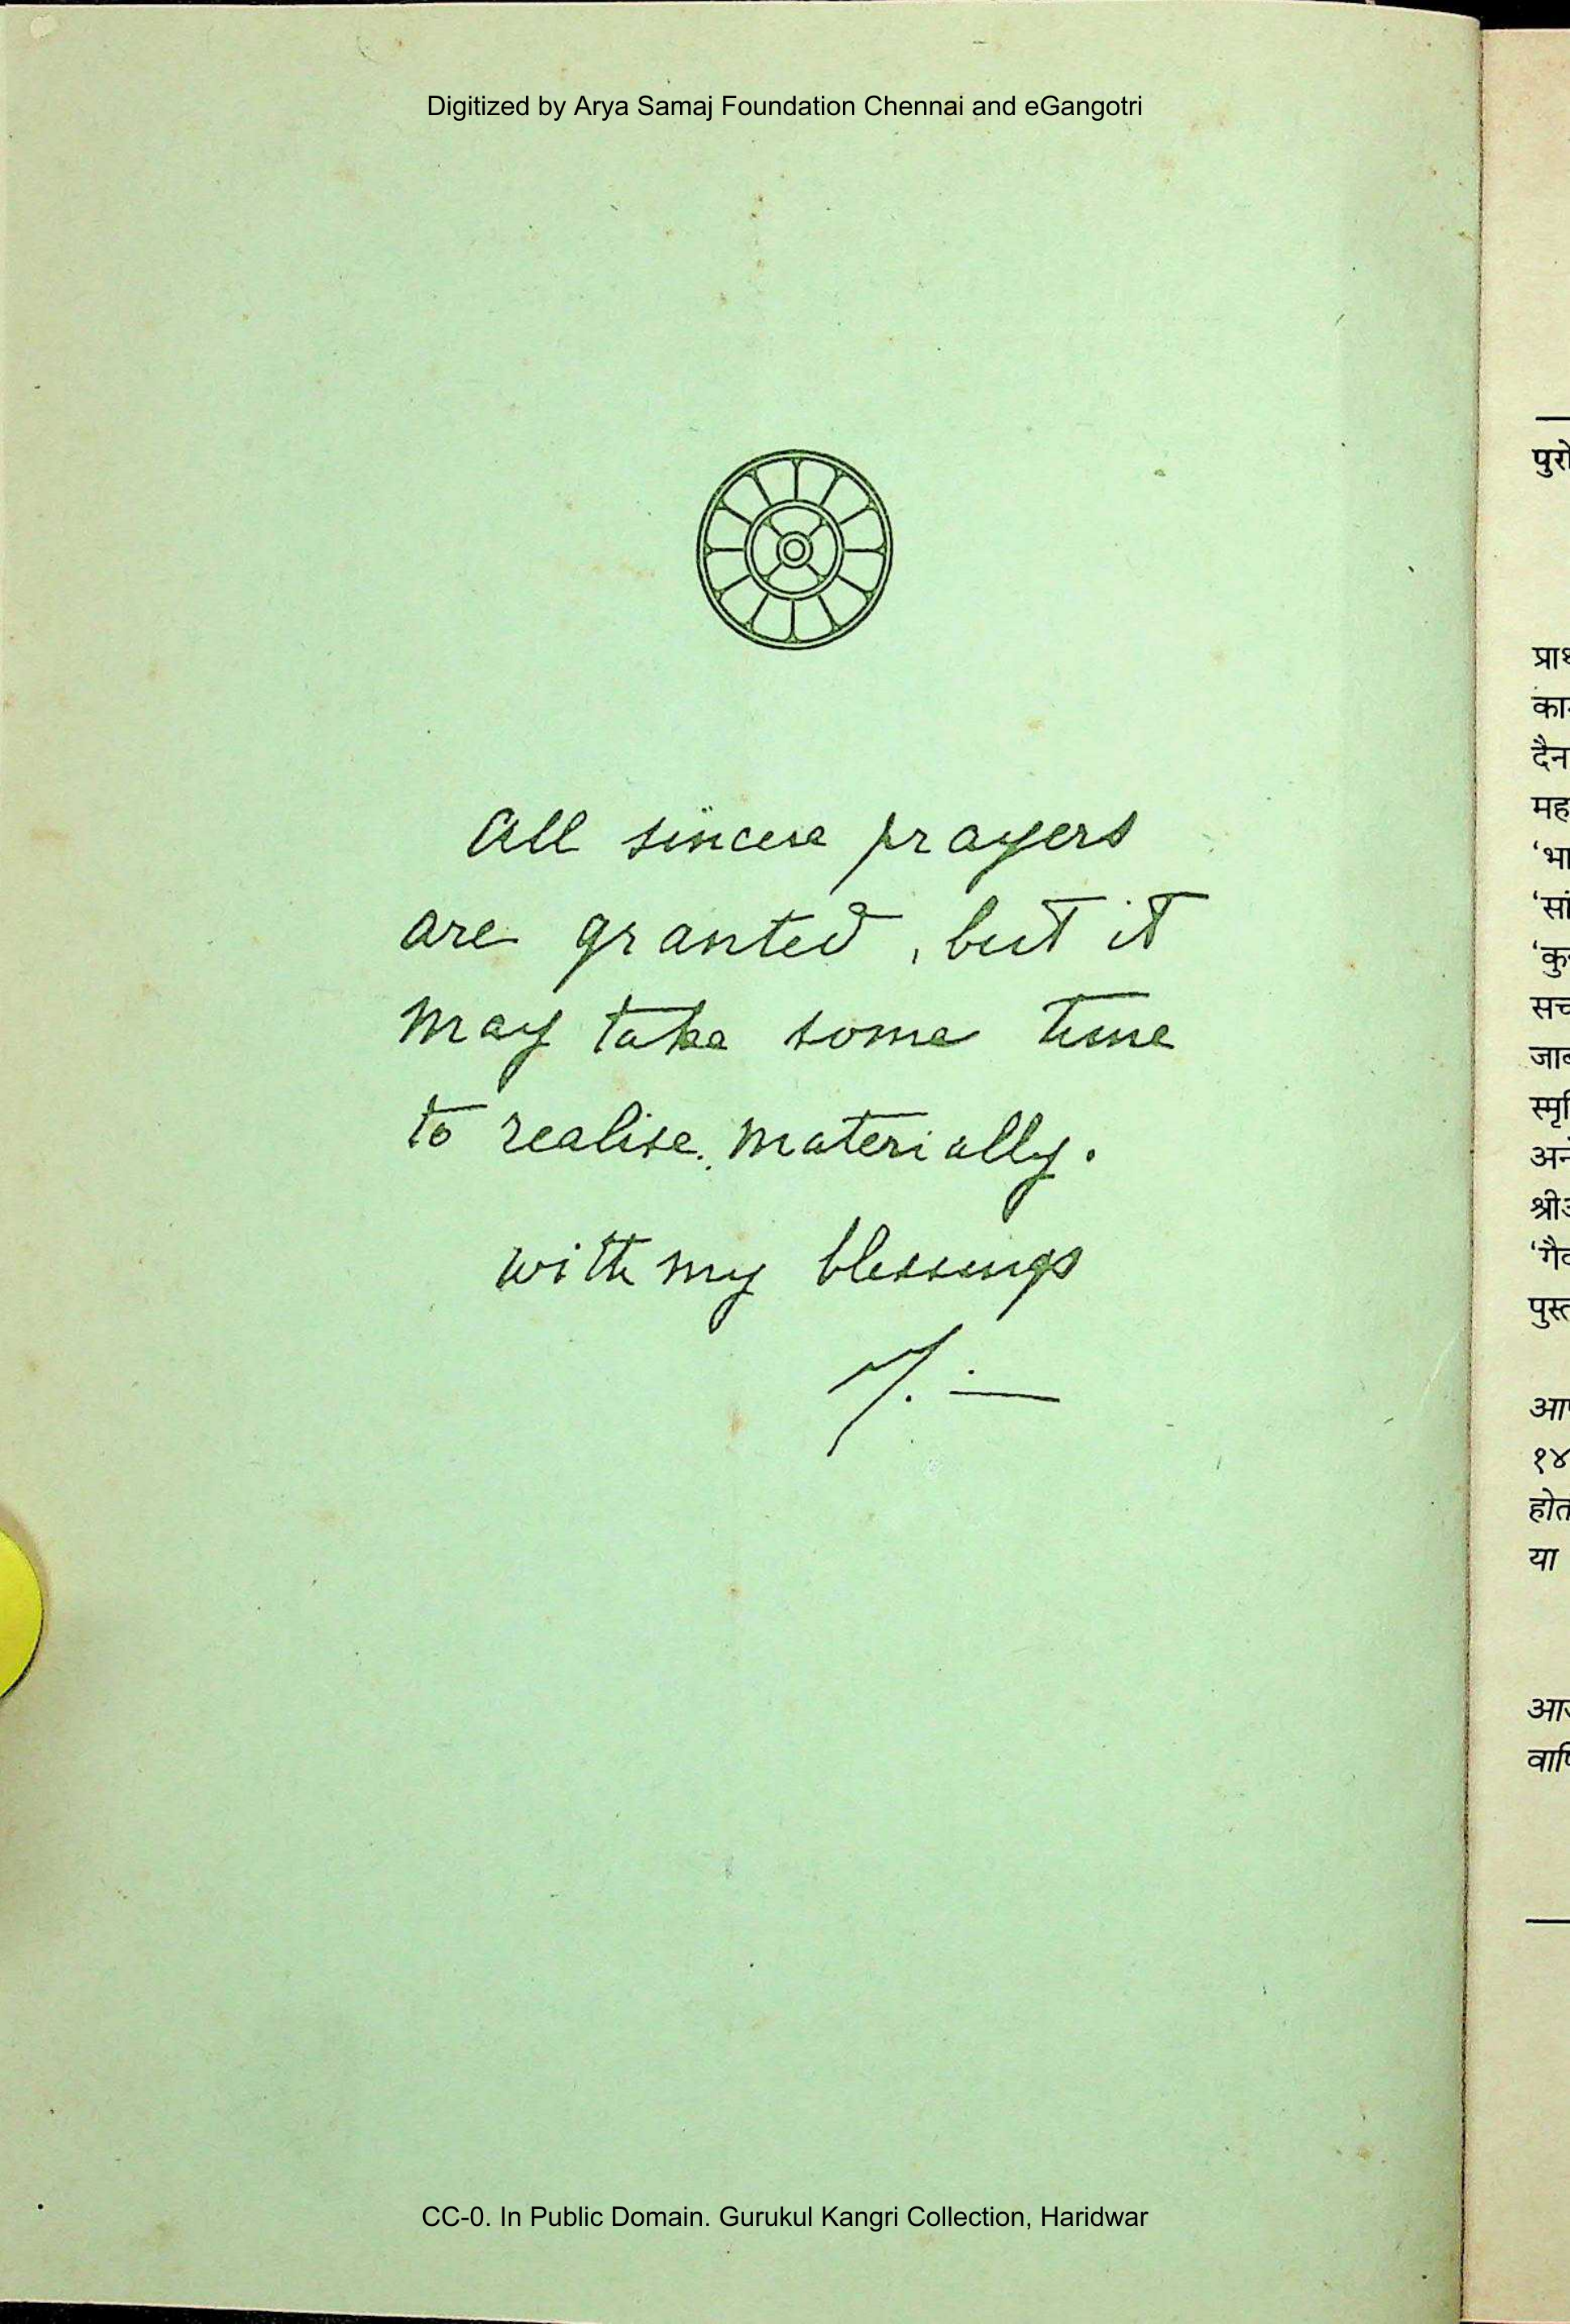 Digitized by Arya Samaj Foundation Chennai and eGangotri
All sincere prayers
are granted, but it
may take some time
to realise materially.
with my blessings
पुरो
दैन
मह
१४
या
CC-0. In Public Domain. Gurukul Kangri Collection, Haridwar